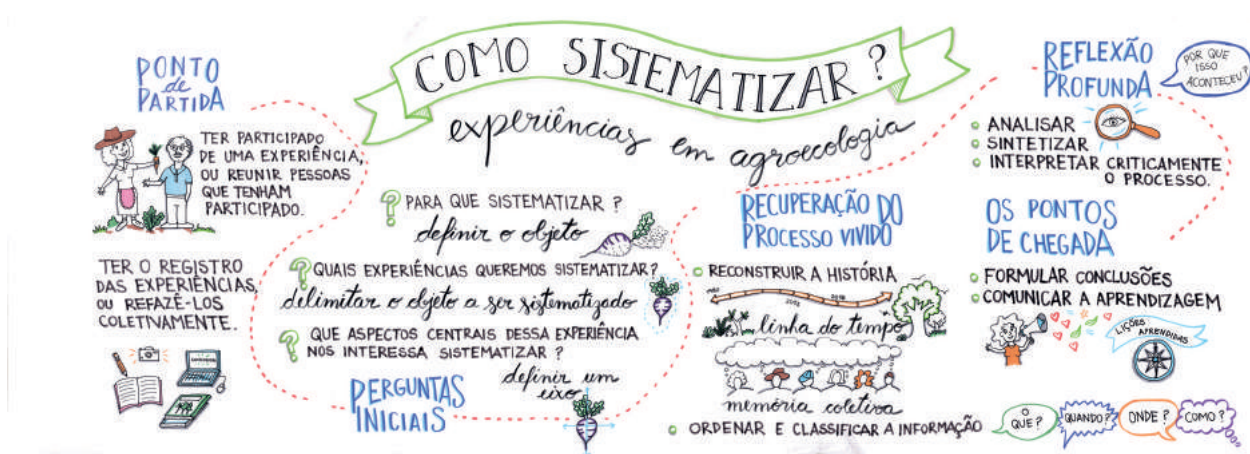 COMO SISTEMATIZAR?
experiências em agroecologia
PONTO
de
PARTIDA
TER PARTICIPADO
DE UMA EXPERIÊNCIA,
OU REUNIR PESSOAS
QUE TENHAM
PARTICIPADO.
TER O REGISTRO
DAS EXPERIÊNCIAS,
OU REFAZÊ-LOS
COLETIVAMENTE.
PERGUNTAS
INICIAIS
? PARA QUE SISTEMATIZAR?
definir o objeto
? QUAIS EXPERIÊNCIAS QUEREMOS SISTEMATIZAR?
delimitar o objeto a ser sistematizado
? QUE ASPECTOS CENTRAIS DESSA EXPERIÊNCIA
NOS INTERESSA SISTEMATIZAR?
definir um
eixo
RECUPERAÇÃO DO
PROCESSO VIVIDO
RECONSTRUIR A HISTÓRIA
linha do tempo
memória coletiva
ORDENAR E CLASSIFICAR A INFORMAÇÃO
O
QUE?
QUANDO?
ONDE?
COMO?
REFLEXÃO
PROFUNDA
POR QUE
ISSO
ACONTECEU?
ANALISAR
SINTETIZAR
INTERPRETAR CRITICAMENTE
O PROCESSO.
OS PONTOS
DE CHEGADA
FORMULAR CONCLUSÕES
COMUNICAR A APRENDIZAGEM
LIÇÕES
APRENDIDAS